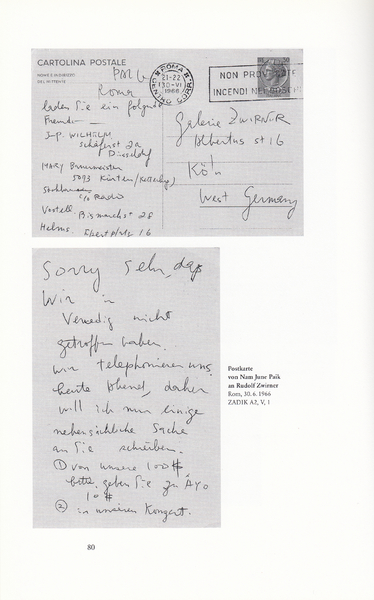 CARTOLINA POSTALE
NOME E INDIRIZZO
DEL MITTENTE
Roma
ROMA
21-22
30-VI
1966
NON PROVOCATE
INCENDI NEI BOSCHI
laden Sie ein folgende
Freunde
J-P. WILHELM
Schäferst 2a
Düsseldorf
MARY Bauermeister
5093 Kürten
c/o Radio
Vostell Bismarckst 28
Helms.
16
Galerie ZWIRNER
Albertus st 16
Köln
West Germany
Sorry Sehr, daß
Wir in
Venedig nicht
getroffen haben.
wir telephonieren uns
heute Abend, daher
will ich nur einige
nebensächliche Sache
an Sie schreiben.
① von unsere 100 $
bitte geben Sie zu AYO
10 $
② in unserem Konzert.
Postkarte
von Nam June Paik
an Rudolf Zwirner
Rom, 30. 6. 1966
ZADIK A2, V, 1
80